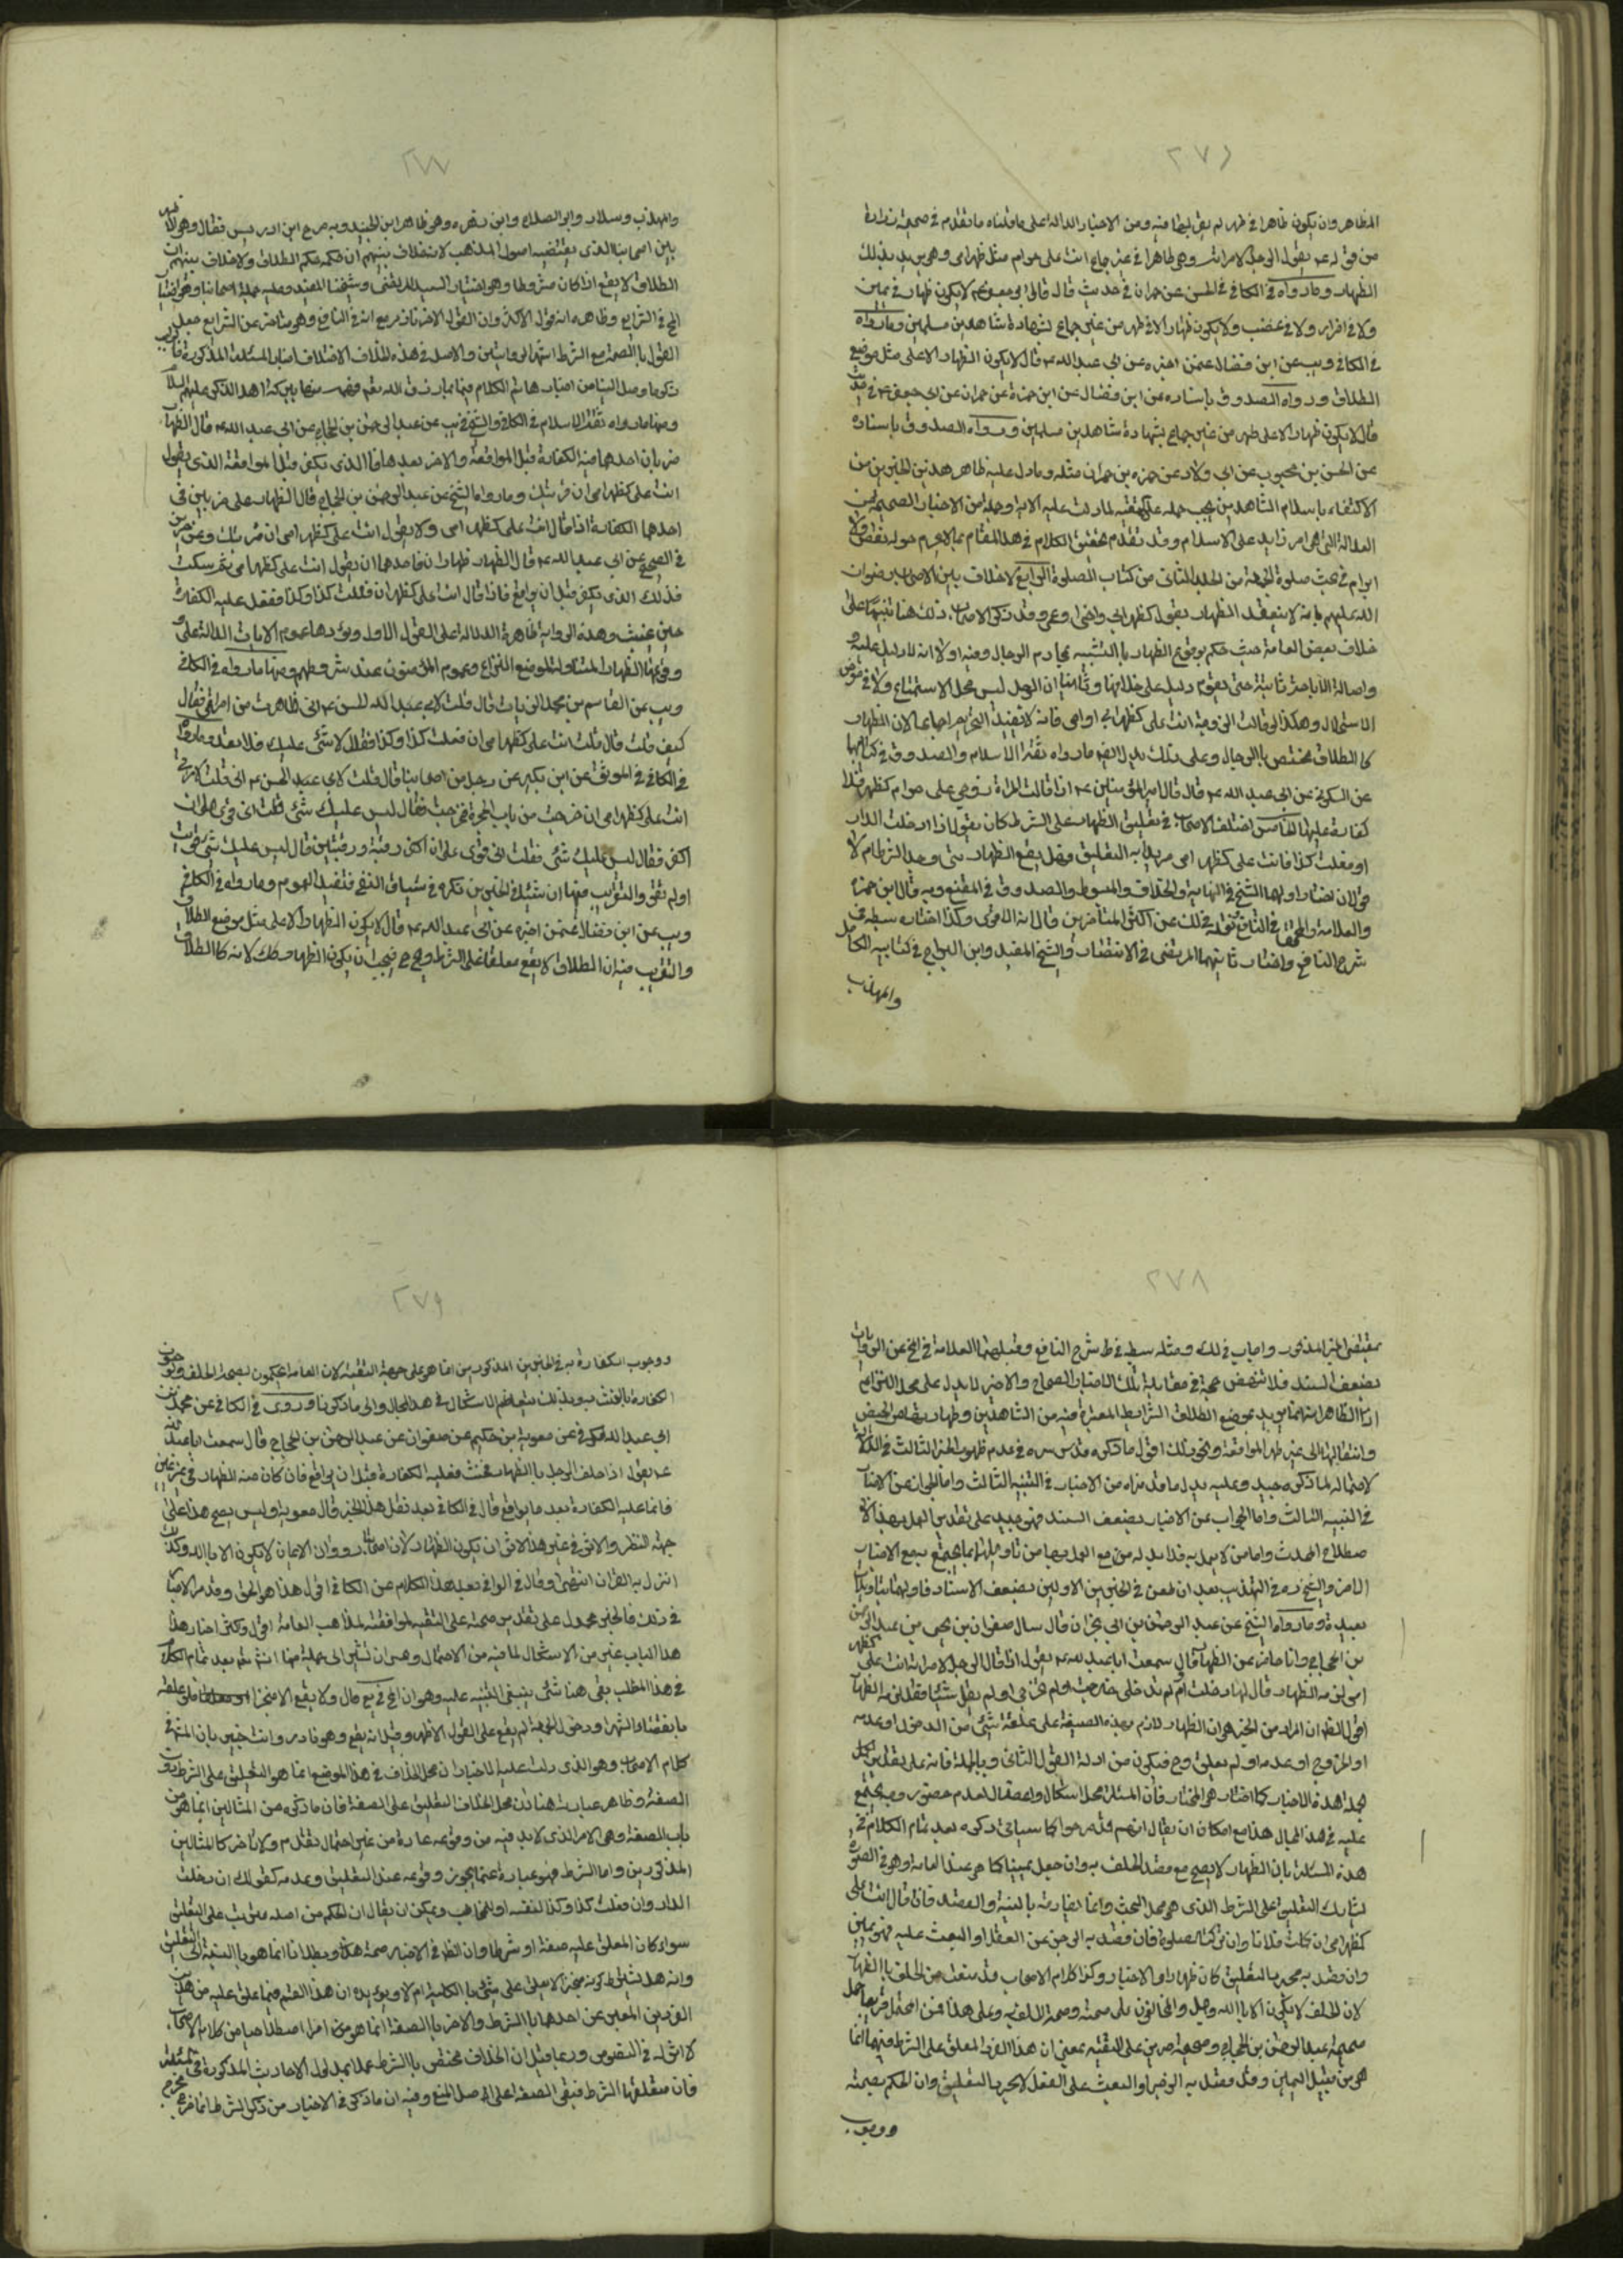 ٢٧٦
المظاهر وان يكون ظاهرا في طهر لم يقربها فيه ومن الاخبار الدالة على ما قلناه ما تقدم في صحيحة زرارة
من قوله ع يقول الرجل لامراته وهي طاهر في غير جماع انت علي حرام مثل ظهر امي وهو يريد بذلك
الظهار وما رواه في الكافي في الحسن عن حمران في حديث قال قال ابو جعفر ع لا يكون ظهار في يمين
ولا في اضرار ولا في غضب ولا يكون ظهار الا في طهر من غير جماع بشهادة شاهدين مسلمين وما رواه
في الكافي ويب عن ابن فضال عمن اخبره عن ابي عبد الله ع قال لا يكون الظهار الا على مثل موضع
الطلاق ورواه الصدوق باسناده عن ابن فضال عن ابن حمزة عن حمران عن ابي جعفر ع في حديث
قال لا يكون ظهار الا على طهر من غير جماع بشهادة شاهدين مسلمين ورواه الصدوق باسناده
عن الحسن بن محبوب عن ابي ولاد عن حمزة بن حمران مثله وما دل عليه ظاهر هذين الخبرين من
الاكتفاء باسلام الشاهدين يجب حمله على لما دلت عليه الاية وجملة من الاخبار الصحيحة من
العدالة التي هي امر زايد على الاسلام وقد تقدم تحقيق الكلام في هذا المقام بما لا يحوم حوله نقض ولا
ابرام في بحث صلوة الجمعة من الجلد الثاني من كتاب الصلوة الرابع لا خلاف بين الاصحاب رضوان
الله عليهم في انه لا ينعقد الظهار بقوله كظهر ابي واخي او عمي وقد ذكر الاصحاب ذلك هنا تنبيها على
خلاف بعض العامة حيث حكم بوقوع الظهار بالتشبيه بمحارم الرجال وفيه اولا انه لا دليل عليه
واصالة الاباحة ثابتة حتى يقوم دليل على خلافها وثانيا ان الرجل ليس محل الاستمتاع ولا في معرض
الاستحلال وهكذا لو قالت الزوجة انت علي كظهر ابي او امي فانه لا يفيد التحريم اجماعا لان الظهار
كالطلاق مختص بالرجال وعلى ذلك يدل ايضا ما رواه ثقة الاسلام والصدوق في كتابيهما
عن السكوني عن ابي عبد الله ع قال قال امير المؤمنين ع اذا قالت المراة زوجي علي حرام كظهر امي فلا
كفارة عليها الخامس اختلف الاصحاب في تعليق الظهار على الشرط كان يقول اذا دخلت الدار
او فعلت كذا فانت علي كظهر امي مريدا به التعليق فهل يقع الظهار متى وجد الشرط ام لا
قولان اختار اولهما الشيخ في النهاية والخلاف والمبسوط والصدوق في المقنع وبه قال ابن حمزة
والعلامة والمحقق في النافع ونقله في لك عن اكثر المتاخرين قال انه الاقوى وكذا اختاره سبطه في
شرح النافع واختار ثانيهما المرتضى في الانتصار والشيخ المفيد وابن البراج في كتابيه الكامل
والمهذب
٢٧٧
والمهذب وسلار وابو الصلاح وابن زهرة وهو ظاهر ابن الجنيد وبه صرح ابن ادريس فقال وهو الاظهر
بين اصحابنا الذي يقتضيه اصول المذهب لانه لا خلاف بينهم ان حكمه حكم الطلاق ولا خلاف بينهم ان
الطلاق لا يقع اذا كان مشروطا وهو اختيار السيد المرتضى وشيخنا المفيد وعليه جملة اصحابنا وهو اختيار
المحقق في الشرايع وظاهره انه قول الاكثر وان القول الاخر نادر مع انه في النافع وهو متاخر عن الشرايع جعل
القول بالصحة مع الشرط اشهر الروايتين والاصل في هذا الخلاف الاختلاف اخبار المسئلة المذكورة
ذكر ما وصل الينا من اخبار هاتم الكلام فيها بما رزق الله تعالى فهمه منها ببركة اهل الذكر عليهم السلام
ومنها ما رواه ثقة الاسلام في الكافي والشيخ في يب عن عبد الرحمن بن الحجاج عن ابي عبد الله ع قال الظهار
ضربان احدهما فيه الكفارة قبل المواقعة والاخر بعدها فالذي يكفر قبل المواقعة الذي يقول
انت علي كظهر امي ان قربتك وما رواه الشيخ عن عبد الرحمن بن الحجاج قال الظهار على ضربين في
احدهما الكفارة اذا قال انت علي كظهر امي ولا يقول انت علي كظهر امي ان قربتك وعن حريز
في الصحيح عن ابي عبد الله ع قال الظهار ظهاران فاحدهما ان يقول انت علي كظهر امي ثم يسكت
فذلك الذي يكفر قبل ان يواقع فاذا قال انت علي كظهر امي ان فعلت كذا وكذا ففعل فعليه الكفارة
حين يحنث وهذه الرواية ظاهرة الدلالة على القول الاول ويؤيدها عموم الايات الدالة على
وقوع الظهار المتناولة لموضع النزاع وعموم المؤمنون عند شروطهم ومنها ما رواه في الكافي
ويب عن القاسم بن محمد الزيات قال قلت لابي الحسن ع اني ظاهرت من امراتي فقال
كيف قلت قال قلت انت علي كظهر امي ان فعلت كذا وكذا فقال لا شئ عليك فلا تعد وما رواه
في الكافي في الموثق عن ابن بكير عن رجل من اصحابنا قال قلت لابي الحسن ع اني قلت لامراتي
انت علي كظهر امي ان خرجت من باب الحجرة فخرجت فقال ليس عليك شئ قلت اني قوي على ان
اكفر فقال ليس عليك شئ فقلت اني قوي على ان اكفر رقبة ورقبتين قال ليس عليك شئ قويت
او لم تقو والتقريب فيهما ان شيئا في الخبرين نكرة في سياق النفي فتفيد العموم وما رواه في الكافي
ويب عن ابن فضال عمن اخبره عن ابي عبد الله ع قال لا يكون الظهار الا على مثل موضع الطلاق
والتقريب فيه ان الطلاق لا يقع معلقا على الشرط وح فيجب ان يكون الظهار كذلك لانه كالطلاق
٢٧٨
بمقتضى الخبر المذكور واجاب في لك ومثله سبطه في شرح النافع وقبلهما العلامة في المخ عن الروايات
بضعف السند فلا تنهض حجة في مقابلة تلك الاخبار الصحاح والاخير لا يدل على محل النزاع
اذ الظاهر انه انما يريد بموضع الطلاق الشرايط المعتبرة فيه من الشاهدين وطهارتها من الحيض
وانتقالها الى غير طهر المواقعة ونحو ذلك اقول ما ذكره قدس سره في عدم ظهور الخبر الثالث في الدلالة
لاحتماله لما ذكره جيد وعليه يدل ما قدمناه من الاخبار في التنبيه الثالث واما الجواب عن الاخبار
في التنبيه الثالث واما الجواب عن الاخبار بضعف السند فهو جيد على تقدير العمل بهذا الا
صطلاح المحدث واما من لا يعمل به فلا بد له من مع العمل بها من تاويلها بما يجتمع به مع الاخبار
الاخر والشيخ ره في التهذيب بعد ان طعن في الخبرين الاولين بضعف الاسناد تاويلات
بعيدة وما رواه الشيخ عن عبد الرحمن بن ابي نجران قال سال صفوان بن يحيى عبد الرحمن
بن الحجاج وانا حاضر عن الظهار قال سمعت ابا عبد الله ع يقول اذا قال الرجل لامراته انت علي كظهر
امي لزمه الظهار قال لها دخلت او لم تدخلي خرجت او لم تخرجي او لم يقل شيئا فقد لزمه الظهار
اقول الظاهر ان المراد من الخبر هو ان الظهار لازم بهذه الصيغة علقه على شئ من الدخول او عدمه
او الخروج او عدمه او لم يعلق وح فيكون من ادلة القول الثاني وبالجملة فانه على تقدير العمل
بجملة هذه الاخبار كما اختار هو المختار فان المسئلة محل اشكال واعضال لعدم حضور وجه يجتمع
عليه في هذا المجال هذا مع امكان ان يقال انهم قد صرحوا كما سياتي ذكره بعد تمام الكلام في
هذه المسئلة بان الظهار لا يصح مع قصد الحلف به وان جعل يمينا كما هو عند العامة وهو في الصورة
يشارك التعليق على الشرط الذي هو محل البحث وانما يفارقه بالنية والقصد فاذا قال انت علي
كظهر امي ان كلمت فلانا وان تركت الصلوة فان قصد به الزجر عن الفعل او البعث عليه فهو يمين
وان قصد به مجرد التعليق كان ظهارا والاخبار وكذا كلام الاصحاب قد منعت من الحلف بالظهار
لان الحلف لا يكون الا بالله عز وجل والمخالفون على صحته وصحة الحلف به وعلى هذا فمن المحتمل قريبا حمل
صحيحة عبد الرحمن بن الحجاج وصحيحة حريز على التقية بمعنى ان هذا الفرد المعلق على الشرط فيهما انما
هو من قبيل اليمين وقد قصد به الزجر او البعث على الفعل لا مجرد التعليق وان الحكم بصحته
ووجوب
٢٧٩
ووجوب الكفارة به في الخبرين المذكورين انما هو على جهة التقية لان العامة يحكمون بصحة الحلف به ووجوب
الكفارة بالحنث وبذلك يتعاظم الاشكال في هذا المجال والى ما ذكرنا وروى في الكافي عن محمد بن
ابي عبد الله الكوفي عن معوية بن حكيم عن صفوان عن عبد الرحمن بن الحجاج قال سمعت ابا عبد الله
ع يقول اذا حلف الرجل بالظهار فحنث فعليه الكفارة قبل ان يواقع فان كان منه الظهار في غير يمين
فانما عليه الكفارة بعد ما يواقع قال في الكافي بعد نقل هذا الخبر قال معوية وليس يصح هذا على
جهة النظر والاثر في غير هذا الاثر ان يكون الظهار لان اصحابنا رووا ان الايمان لا يكون الا بالله وكذلك
انزل به القران انتهى وقال في الوافي بعد هذا الكلام عن الكافي اقول هذا هو الحق وقد مر الاخبار
في ذلك فالخبر محمول على تقدير صحته على التقية لموافقته لمذاهب العامة اقول وكثير اخبار هذا
هذا الباب غير من الاشكال لما فيه من الاحتمال وهو ان نشير الى جملة منها انشاء الله بعد تمام الكلام
في هذا المطلب بقي هنا شئ ينبغي التنبيه عليه وهو ان المحقق في يع قال ولا يقع الا منجزا فلو علقه
بانقضاء الشهر او دخول الجمعة لم يقع على القول الاظهر وقيل انه يقع وهو نادر وانت خبير بان المشهور في
كلام الاصحاب وهو الذي دلت عليه الاخبار ان محل الخلاف في هذا الموضع انما هو التعليق على الشرط دون
الصفة وظاهر عبارته هنا ان محل الخلاف التعليق على الصفة فان ما ذكره من المثالين انما هو من
باب الصفة وهي الامر الذي لا بد فيه من وقوعه عادة من غير احتمال تقدم ولا تاخر كالمثالين
المذكورين واما الشرط فهو عبارة عما يجوز وقوعه عند التعليق وعدمه كقولك ان دخلت
الدار وان فعلت كذا وكذا لنفسه او المخاطب ويمكن ان يقال ان الحكم من اصله مترتب على التعليق
سواء كان المعلق عليه صفة او شرطا وان النظر في الاخبار صحة هنا وبطلانا انما هو بالنسبة الى التعليق
وانه هل يشترط كونه منجزا لا يعلق على شئ بالكلية ام لا ويؤيده ان هذا التقسيم فيما علق عليه من هذين
الفردين المعبر عن احدهما بالشرط والاخر بالصفة انما هو من اصطلاحيا من كلام الاصحاب
لا اثر له في النصوص وربما قيل ان الخلاف مختص بالشرط عملا بمدلول الاحاديث المذكورة في المسئلة
فان متعلقها الشرط فتبقى الصفة على اصل المنع وفيه ان ما ذكر في الاخبار من ذكر الشرط انما خرج مخرج